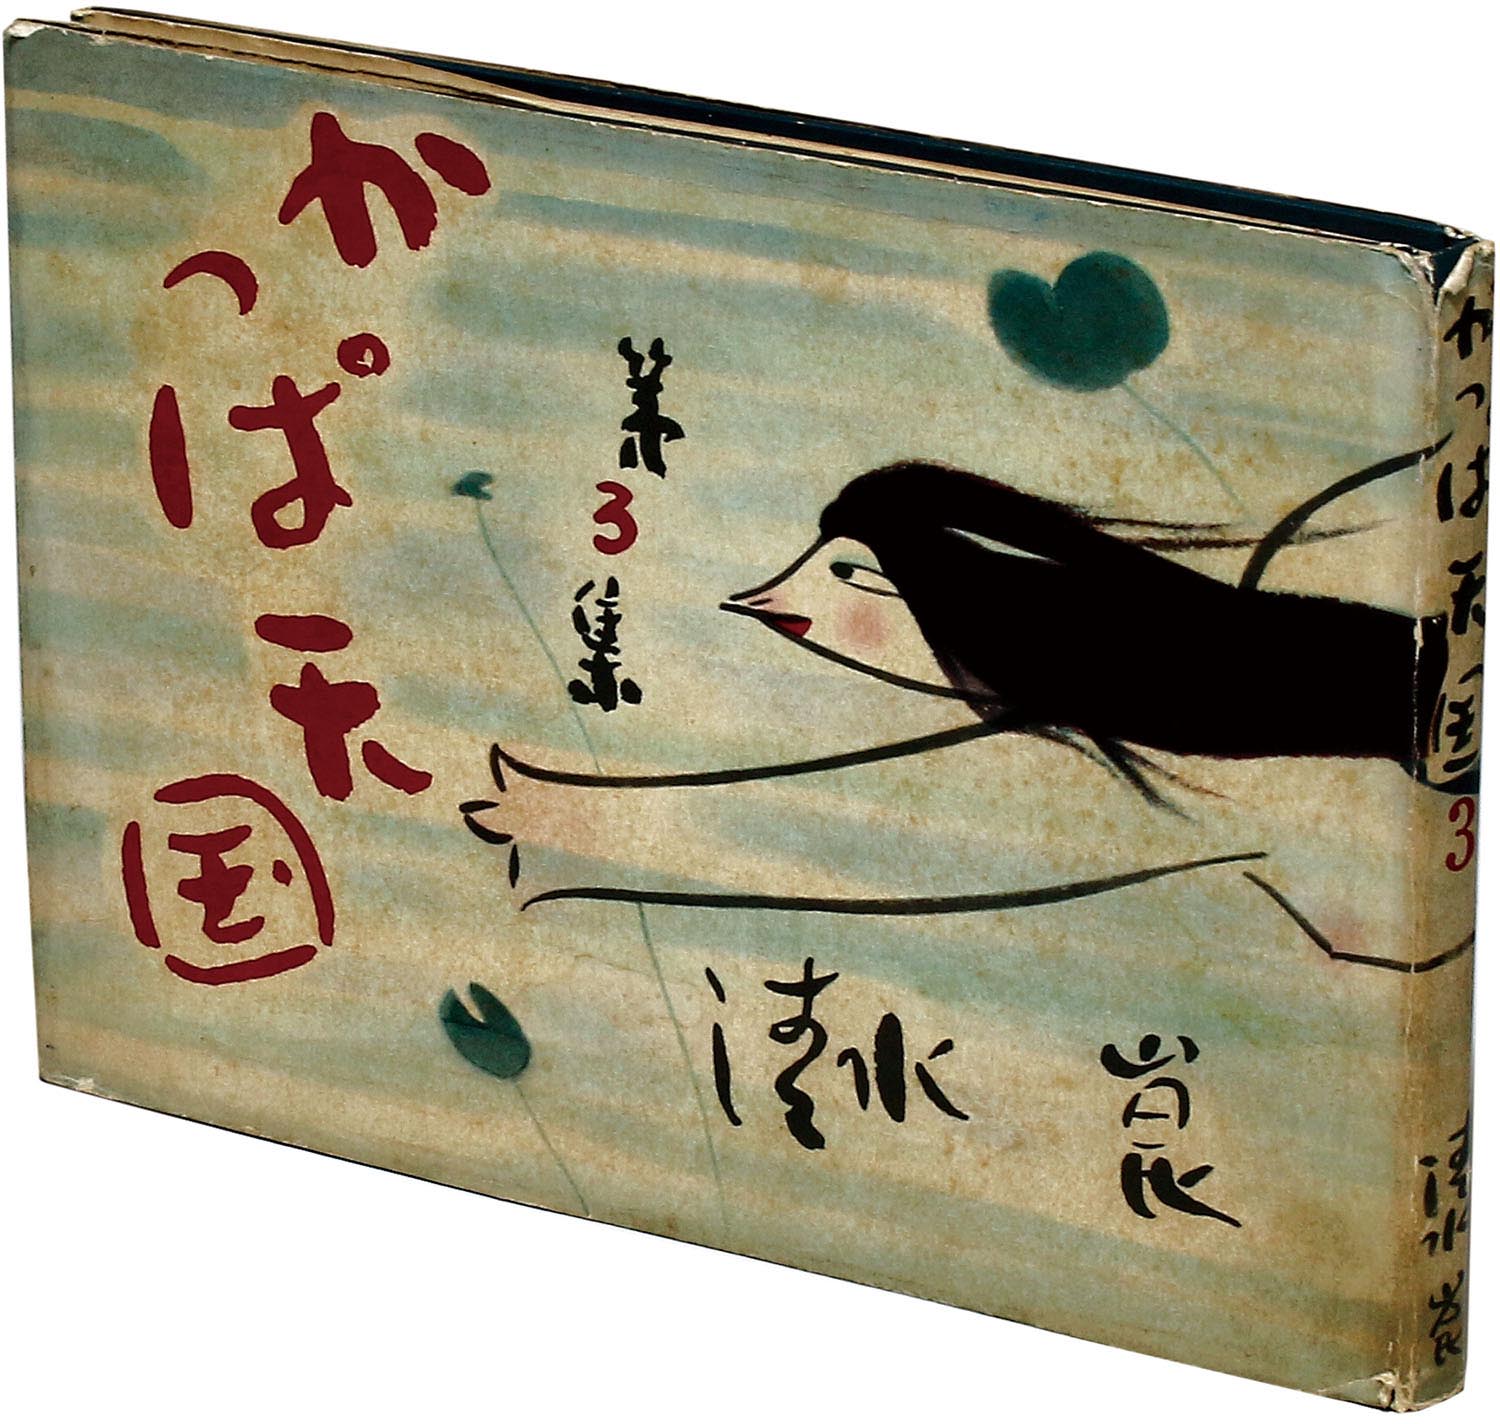 かっぱ天国
第3集
清水崑
かっぱ天国
3
清水崑